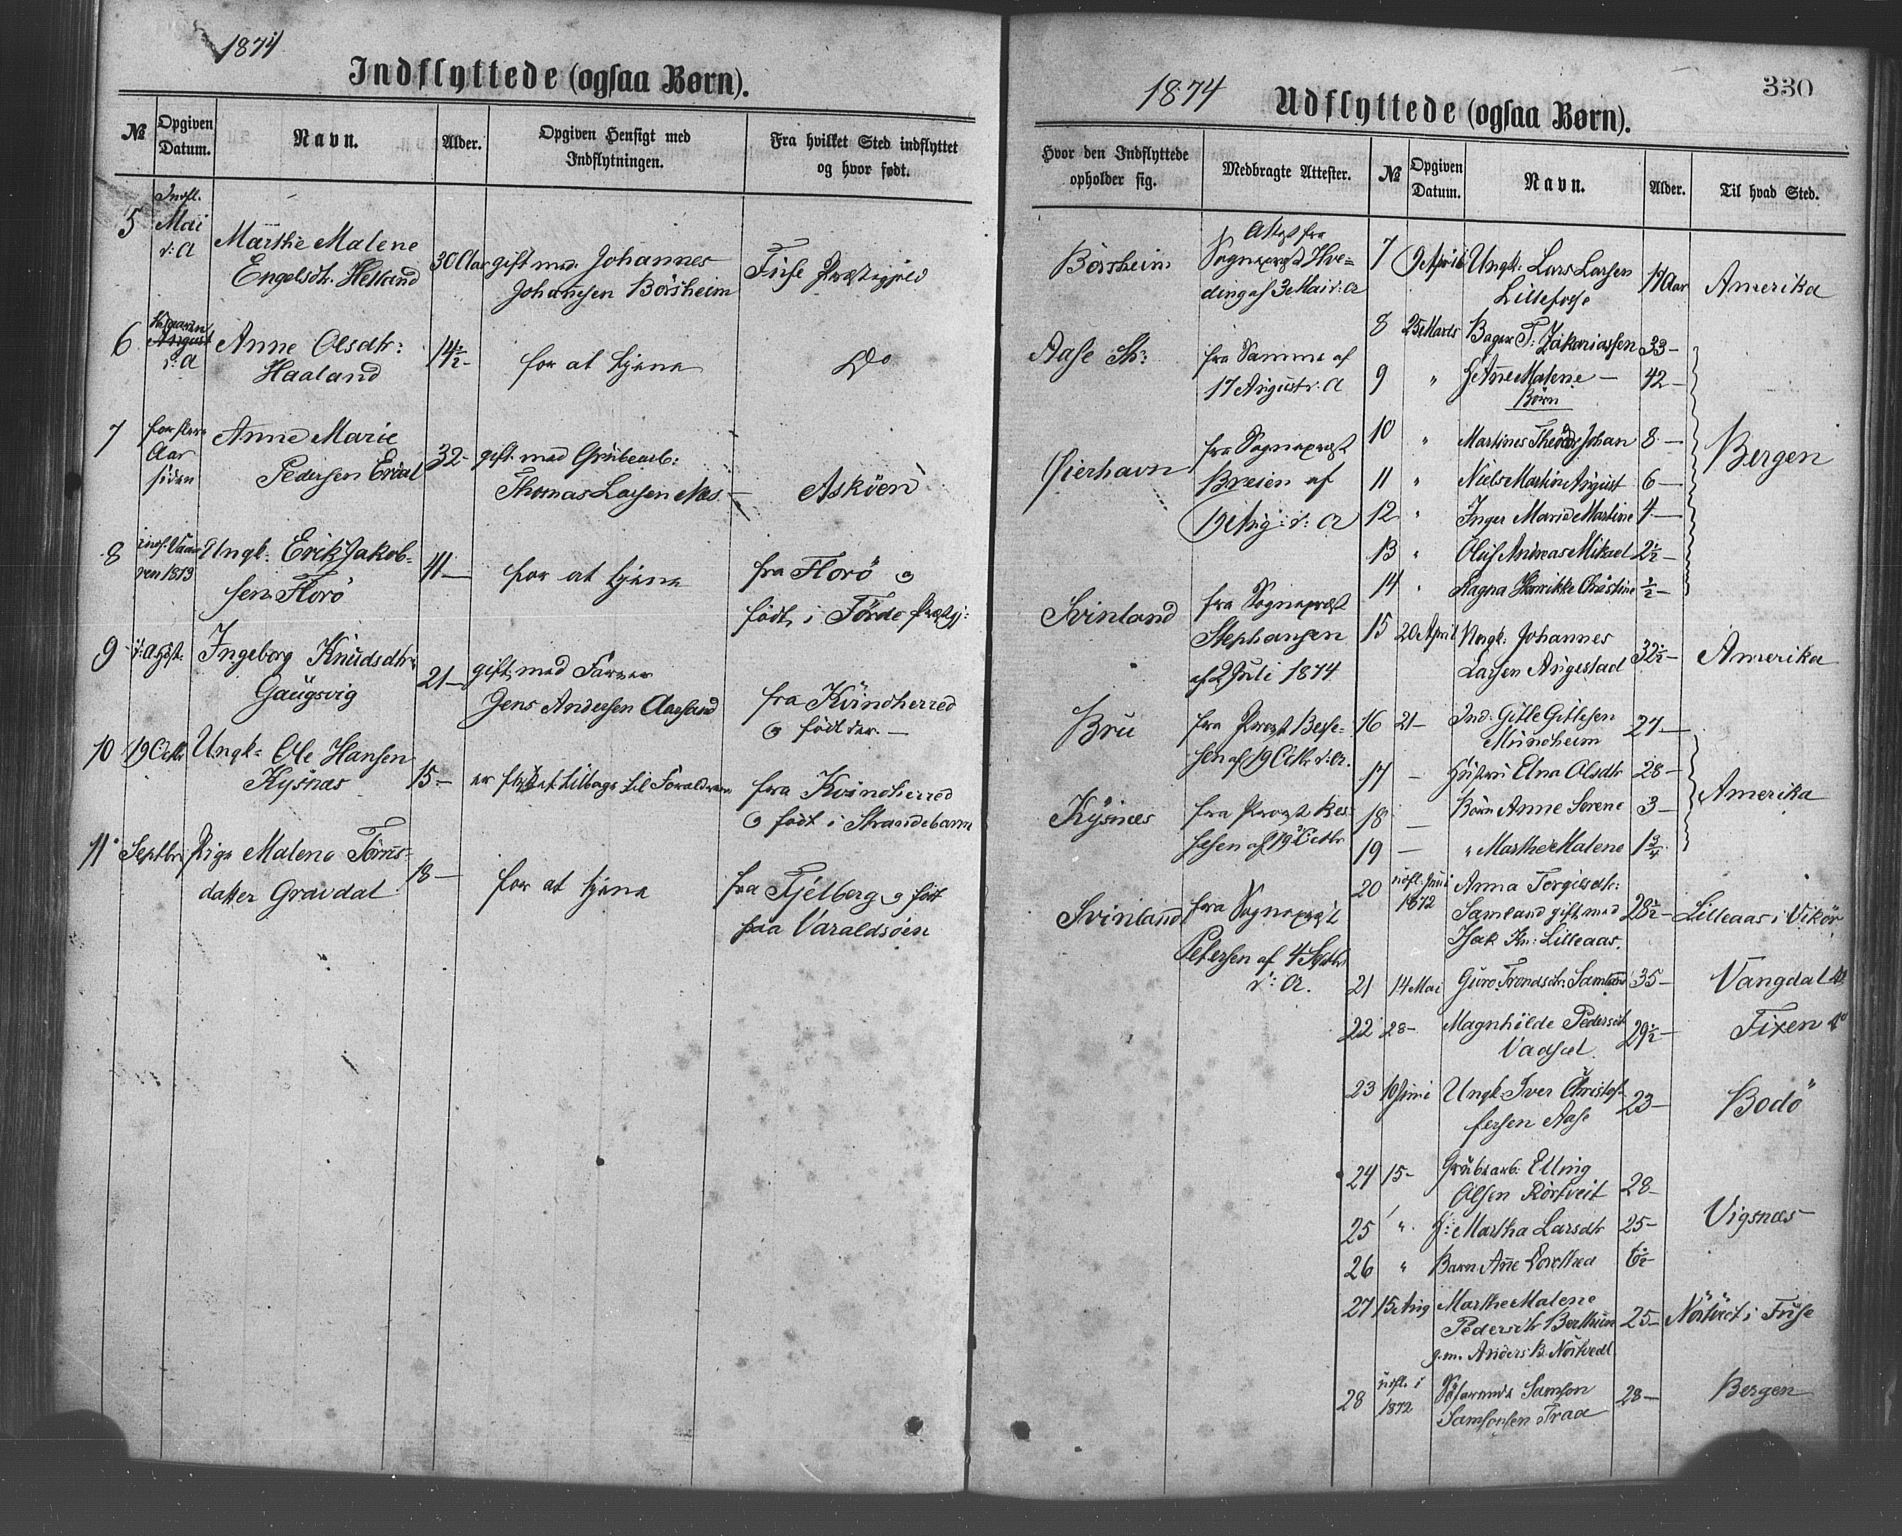 1874
Indflyttede (ogsaa Børn).
№
Opgiven Datum.
Navn.
Alder.
Opgiven Hensigt med Indflytningen.
Fra hvilket Sted indflyttet og hvor født.
5
Indfl. Mai d: A
Marthe Malene
Engelsdtr. Helland
30 Aar
gift med Johannes
Johannesen Börsheim
Fuse Præstegjeld
6
August d: A
Anne Olsdtr:
Haaland
14½ -
for at tjene
Do
7
for flere
Aar
siden
Anne Marie
Pedersen
32 -
gift med Grubearb:
Thomas Larsen Næs -
Asköen
8
indf. Vaaren 1873
Ungk. Erik Jakob-
sen Florö
41 -
for at tjene
fra Florö o
födt i Förde Præstgj:
9
d: A Høst.
Ingeborg Knudsdtr
Gaugsvig
21 -
gift med Farver
Jens Andersen Aarsand
fra Kvindherred
o födt der. -
10
19 Octbr
Ungk. Ole Hansen
Kysnæs
15 -
er flyttet tilbage til Forældrene
fra Kvindherred
o födt i Strandebarm
11
Septbr
Pige Malene Tørris-
datter Gravdal
18 -
for at tjene
fra Fjelberg o födt
paa Varaldsöen
1874
330
Udflyttede (ogsaa Børn).
Hvor den Indflyttede opholder sig.
Medbragte Attester.
№
Opgiven Datum.
Navn.
Alder.
Til hvad Sted.
Börsheim
Attest fra
Sognepræst Hve-
ding af 3 Mai d: A
Aase St:
fra Samme af
17 August d: A
fra Sognepræst
Breien af
19 Aug: d: A
Svinland
fra Sognepræst
Stephansen
af 2 Juli 1874
Bru
fra Provst Besse-
sen af 19 Octbr d: A.
Kysnæs
fra Provst Bes
sesen af 19 Octbr
Svinland
fra Sognepræst
Petersen af 4 Septbr
d: A.
7
9 April
Ungk: Lars Larsen
Lillefosse
17 Aar
Amerika
8
25 Marts
Bager T: Zakariassen
33 -
9
"
H. Ane Malene -
42 -
Børn
10
"
Martines Theodor Johan
8 -
Bergen
11
"
Niels Martin August
6 -
12
"
Inger Marie Martine
4 -
13
"
Oluf Andreas Mikael
2½
14
"
Ragna Henrikke Christine
½ -
15
20 April
Ungk. Johannes
Larsen Angestad
32½ -
Amerika
16
21 -
Ind. Gitle Gitlesen
Mundheim
27 -
17
-
Hustru Elna Olsdtr
28 -
Amerika
18
-
Børn Anne Sørene
3 -
19
-
" Marthe Malene
1¾
20
udfl. Juni
1872
Anna Torgilsdtr:
Samland gift med
Isak Kn: Lilleaas.
28½ -
Lilleaas i Vikör
21
14 Mai
Guro Trondsdtr. Samland
35 -
Vangdal do
22
28 -
Magnhilde Pedersdt
Vadsel.
29½ -
Fixen do
23
10 Juni
Ungk. Iver Christof-
fersen Aase
23 -
Bodö
24
15 -
Grubearb. Elling
Olsen Rörtveit
28 -
Vigsnæs
25
"
H: Martha Larsdtr
25 -
26
"
Barn Ane Dorthea
6½
27
15 Aug
Marthe Malene
Pedersdtr
g.m. Anders B. Nörtvedt
25 -
Nörtvedt i Fuse
28
udfl. i
1872
Samson
Samsonsen Traa
28 -
Bergen